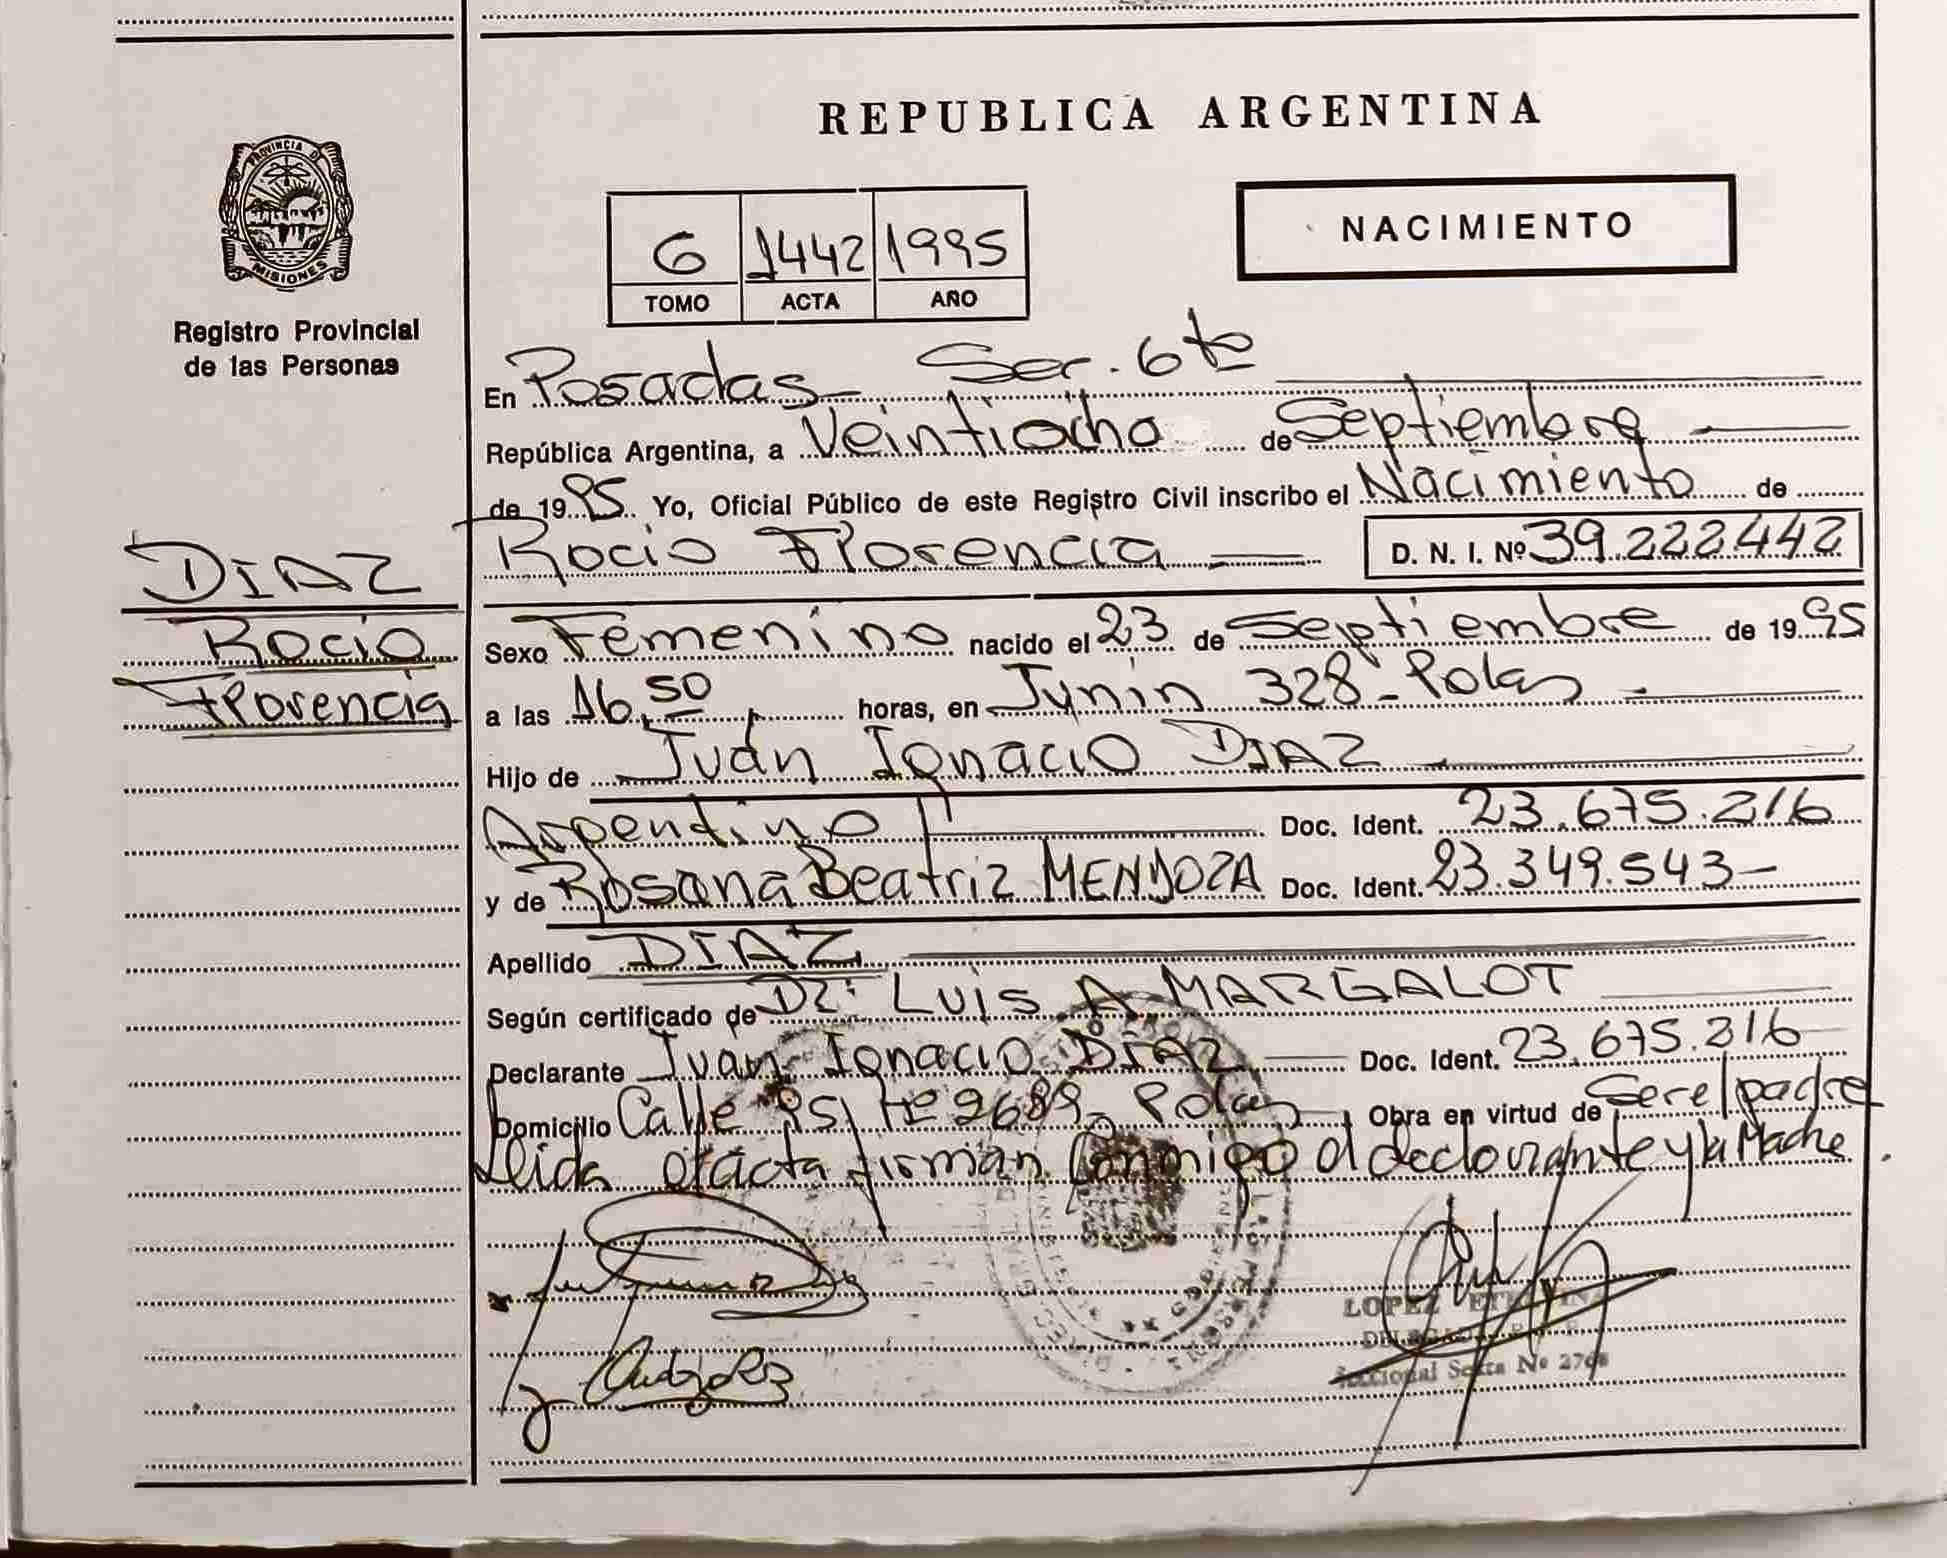 REPUBLICA ARGENTINA
PROVINCIA DE
MISIONES
Registro Provincial
de las Personas
NACIMIENTO
6 1442 1995
TOMO ACTA AÑO
En Posadas Sec. 6to
República Argentina, a Veintiocho de Septiembre
de 1995 Yo, Oficial Público de este Registro Civil inscribo el Nacimiento de
Rocio Florencia D. N. I. Nº 39.222.442
DIAZ
Rocio
Florencia
Sexo Femenino nacido el 23 de Septiembre de 1995
a las 16,50 horas, en Junin 328 - Pdas
Hijo de Juan Ignacio DIAZ
Argentino Doc. Ident. 23.675.216
y de Rosana Beatriz MENDOZA Doc. Ident. 23.349.543
Apellido DIAZ
Según certificado de Dr. LUIS A MARGALOT
Declarante Juan Ignacio DIAZ Doc. Ident. 23.675.216
Domicilio Calle Nº 2689 Pdas Obra en virtud de ser el padre
Leida el acta firman conmigo el declarante y la Madre.
LOPEZ
Seccional Sexta Nº